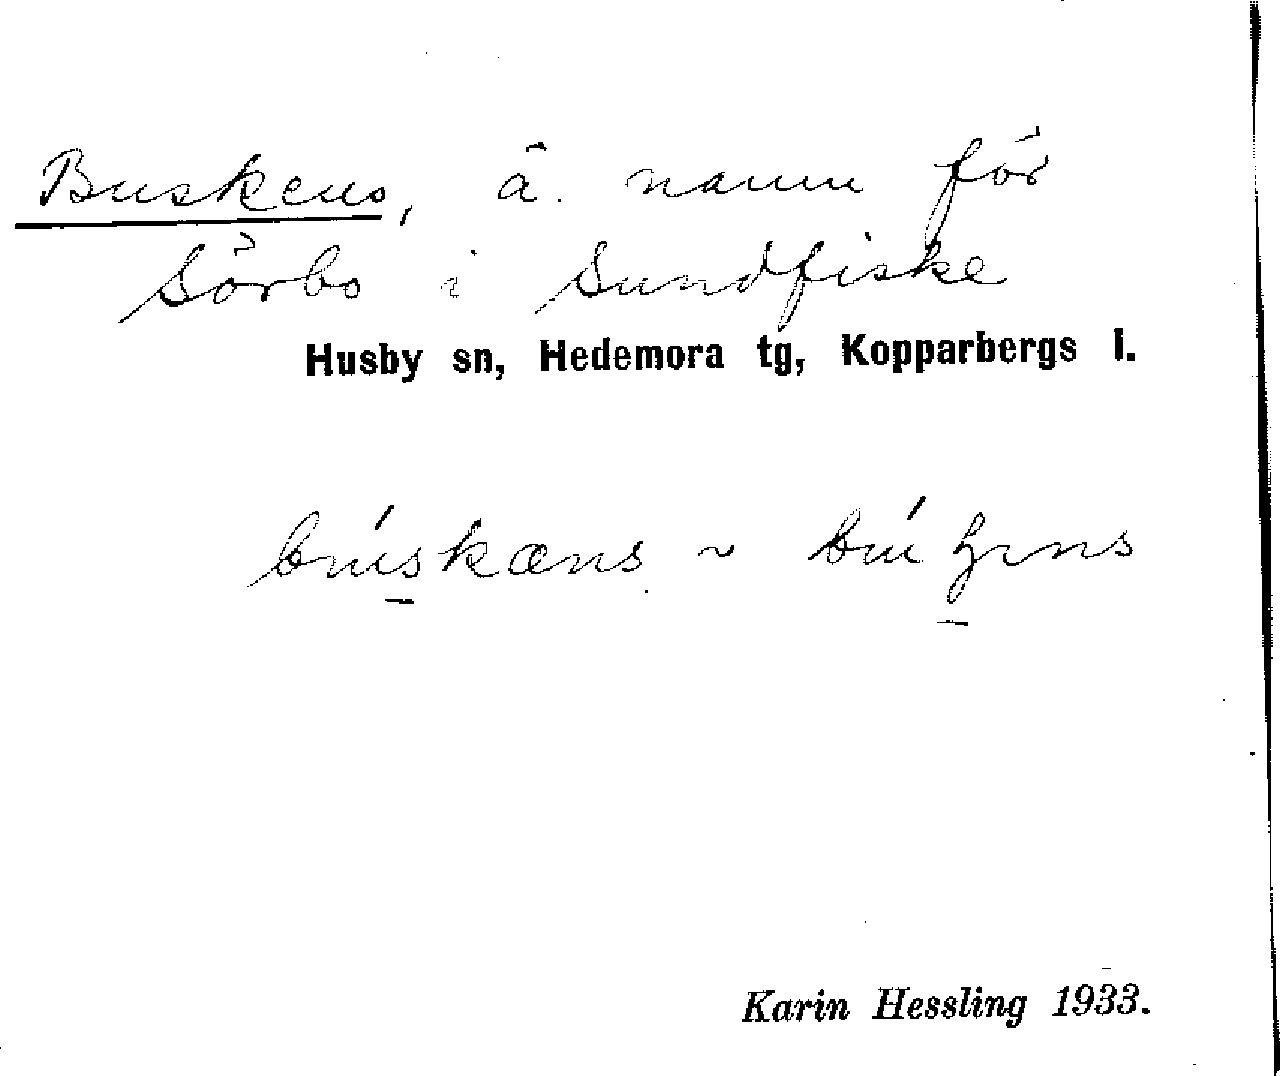 Buskens, ä. namn för
Sörbo i Sundfiske
Husby sn, Hedemora tg, Kopparbergs l.
búskæns ~
Karin Hessling 1933.